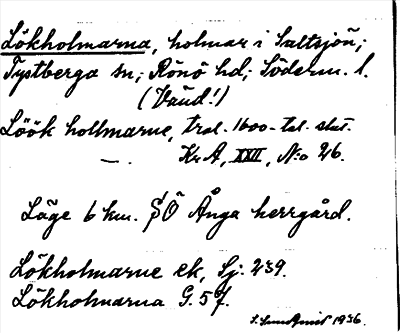 Lökholmarna, holmar i Saltsjön;
Tystberga sn; Rönö hd; Söderm. l.
(Vänd!)
Löök hollmarne, trol. 1600-tal. slut.
—. Kr A, XXII, N:o 26.
Läge 6 km. SÖ Ånga herrgård.
Lökholmarne ek, Sj. 239.
Lökholmarna G. 57.
1936.